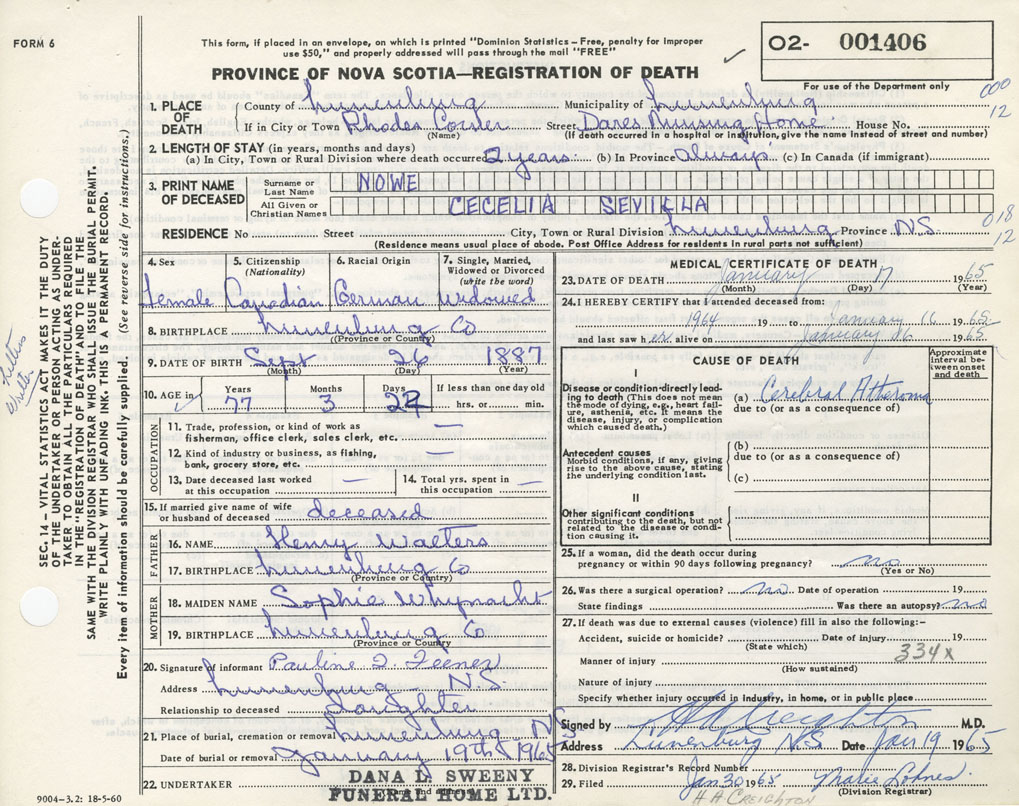 FORM 6
This form, if placed in an envelope, on which is printed "Dominion Statistics – Free, penalty for improper
use $50," and properly addressed will pass through the mail "FREE"
O2- 001406
For use of the Department only
PROVINCE OF NOVA SCOTIA—REGISTRATION OF DEATH
000
12
1. PLACE OF DEATH County of Lunenburg Municipality of Lunenburg
If in City or Town Rhodes Corner Street Danes Nursing Home House No.
(Name) (If death occurred in a hospital or institution, give the name instead of street and number)
2. LENGTH OF STAY (in years, months and days)
(a) In City, Town or Rural Division where death occurred 2 years (b) In Province always (c) In Canada (if immigrant)
3. PRINT NAME OF DECEASED Surname or Last Name NOWE
All Given or Christian Names CECELIA SEVILLA
018
12
RESIDENCE No Street City, Town or Rural Division Lunenburg Province N.S.
(Residence means usual place of abode. Post Office Address for residents in rural parts not sufficient)
4. Sex Female
5. Citizenship (Nationality) Canadian
6. Racial Origin German
7. Single, Married, Widowed or Divorced (write the word) Widowed
8. BIRTHPLACE Lunenburg Co
(Province or County)
9. DATE OF BIRTH Sept 26 1887
(Month) (Day) (Year)
10. AGE in Years 77 Months 3 Days If less than one day old hrs. or min.
OCCUPATION
11. Trade, profession, or kind of work as fisherman, office clerk, sales clerk, etc. —
12. Kind of industry or business, as fishing, bank, grocery store, etc. —
13. Date deceased last worked at this occupation —
14. Total yrs. spent in this occupation —
15. If married give name of wife or husband of deceased deceased
FATHER
16. NAME Henry Walters
17. BIRTHPLACE Lunenburg Co
(Province or Country)
MOTHER
18. MAIDEN NAME Sophie Whynacht
19. BIRTHPLACE Lunenburg Co
(Province or Country)
20. Signature of informant Pauline Feener
Address Lunenburg N.S
Relationship to deceased Daughter
21. Place of burial, cremation or removal Lunenburg NS
Date of burial or removal January 19th 1965
22. UNDERTAKER DANA L. SWEENY
FUNERAL HOME LTD.
MEDICAL CERTIFICATE OF DEATH
23. DATE OF DEATH January 17 1965
(Month) (Day) (Year)
24. I HEREBY CERTIFY that I attended deceased from:
1964 19 to January 16 1965
and last saw her alive on January 16 1965
CAUSE OF DEATH
Approximate interval between onset and death
I
Disease or condition directly leading to death (This does not mean the mode of dying, e.g., heart failure, asthenia, etc. It means the disease, injury, or complication which caused death.)
(a) Cerebral Atheroma
due to (or as a consequence of)
Antecedent causes
Morbid conditions, if any, giving rise to the above cause, stating the underlying condition last.
(b)
due to (or as a consequence of)
(c)
II
Other significant conditions
contributing to the death, but not related to the disease or condition causing it.
25. If a woman, did the death occur during pregnancy or within 90 days following pregnancy? no
(Yes or No)
26. Was there a surgical operation? no Date of operation 19
State findings Was there an autopsy? no
27. If death was due to external causes (violence) fill in also the following:–
Accident, suicide or homicide? Date of injury 19
(State which)
334x
Manner of injury
(How sustained)
Nature of injury
Specify whether injury occurred in industry, in home, or in public place
Signed by H A Creighton M.D.
Address Lunenburg N.S. Date Jan 19 1965
28. Division Registrar's Record Number
29. Filed Jan 30 1965 Marie Lohnes
(Division Registrar)
H A CREIGHTON
9004-3.2: 18-5-60
SEC. 14 – VITAL STATISTICS ACT MAKES IT THE DUTY
OF THE UNDERTAKER OR PERSON ACTING AS UNDER-
TAKER TO OBTAIN ALL THE PARTICULARS REQUIRED
IN THE "REGISTRATION OF DEATH" AND TO FILE THE
SAME WITH THE DIVISION REGISTRAR WHO SHALL ISSUE THE BURIAL PERMIT.
WRITE PLAINLY WITH UNFADING INK. THIS IS A PERMANENT RECORD.
Every item of information should be carefully supplied. (See reverse side for instructions.)